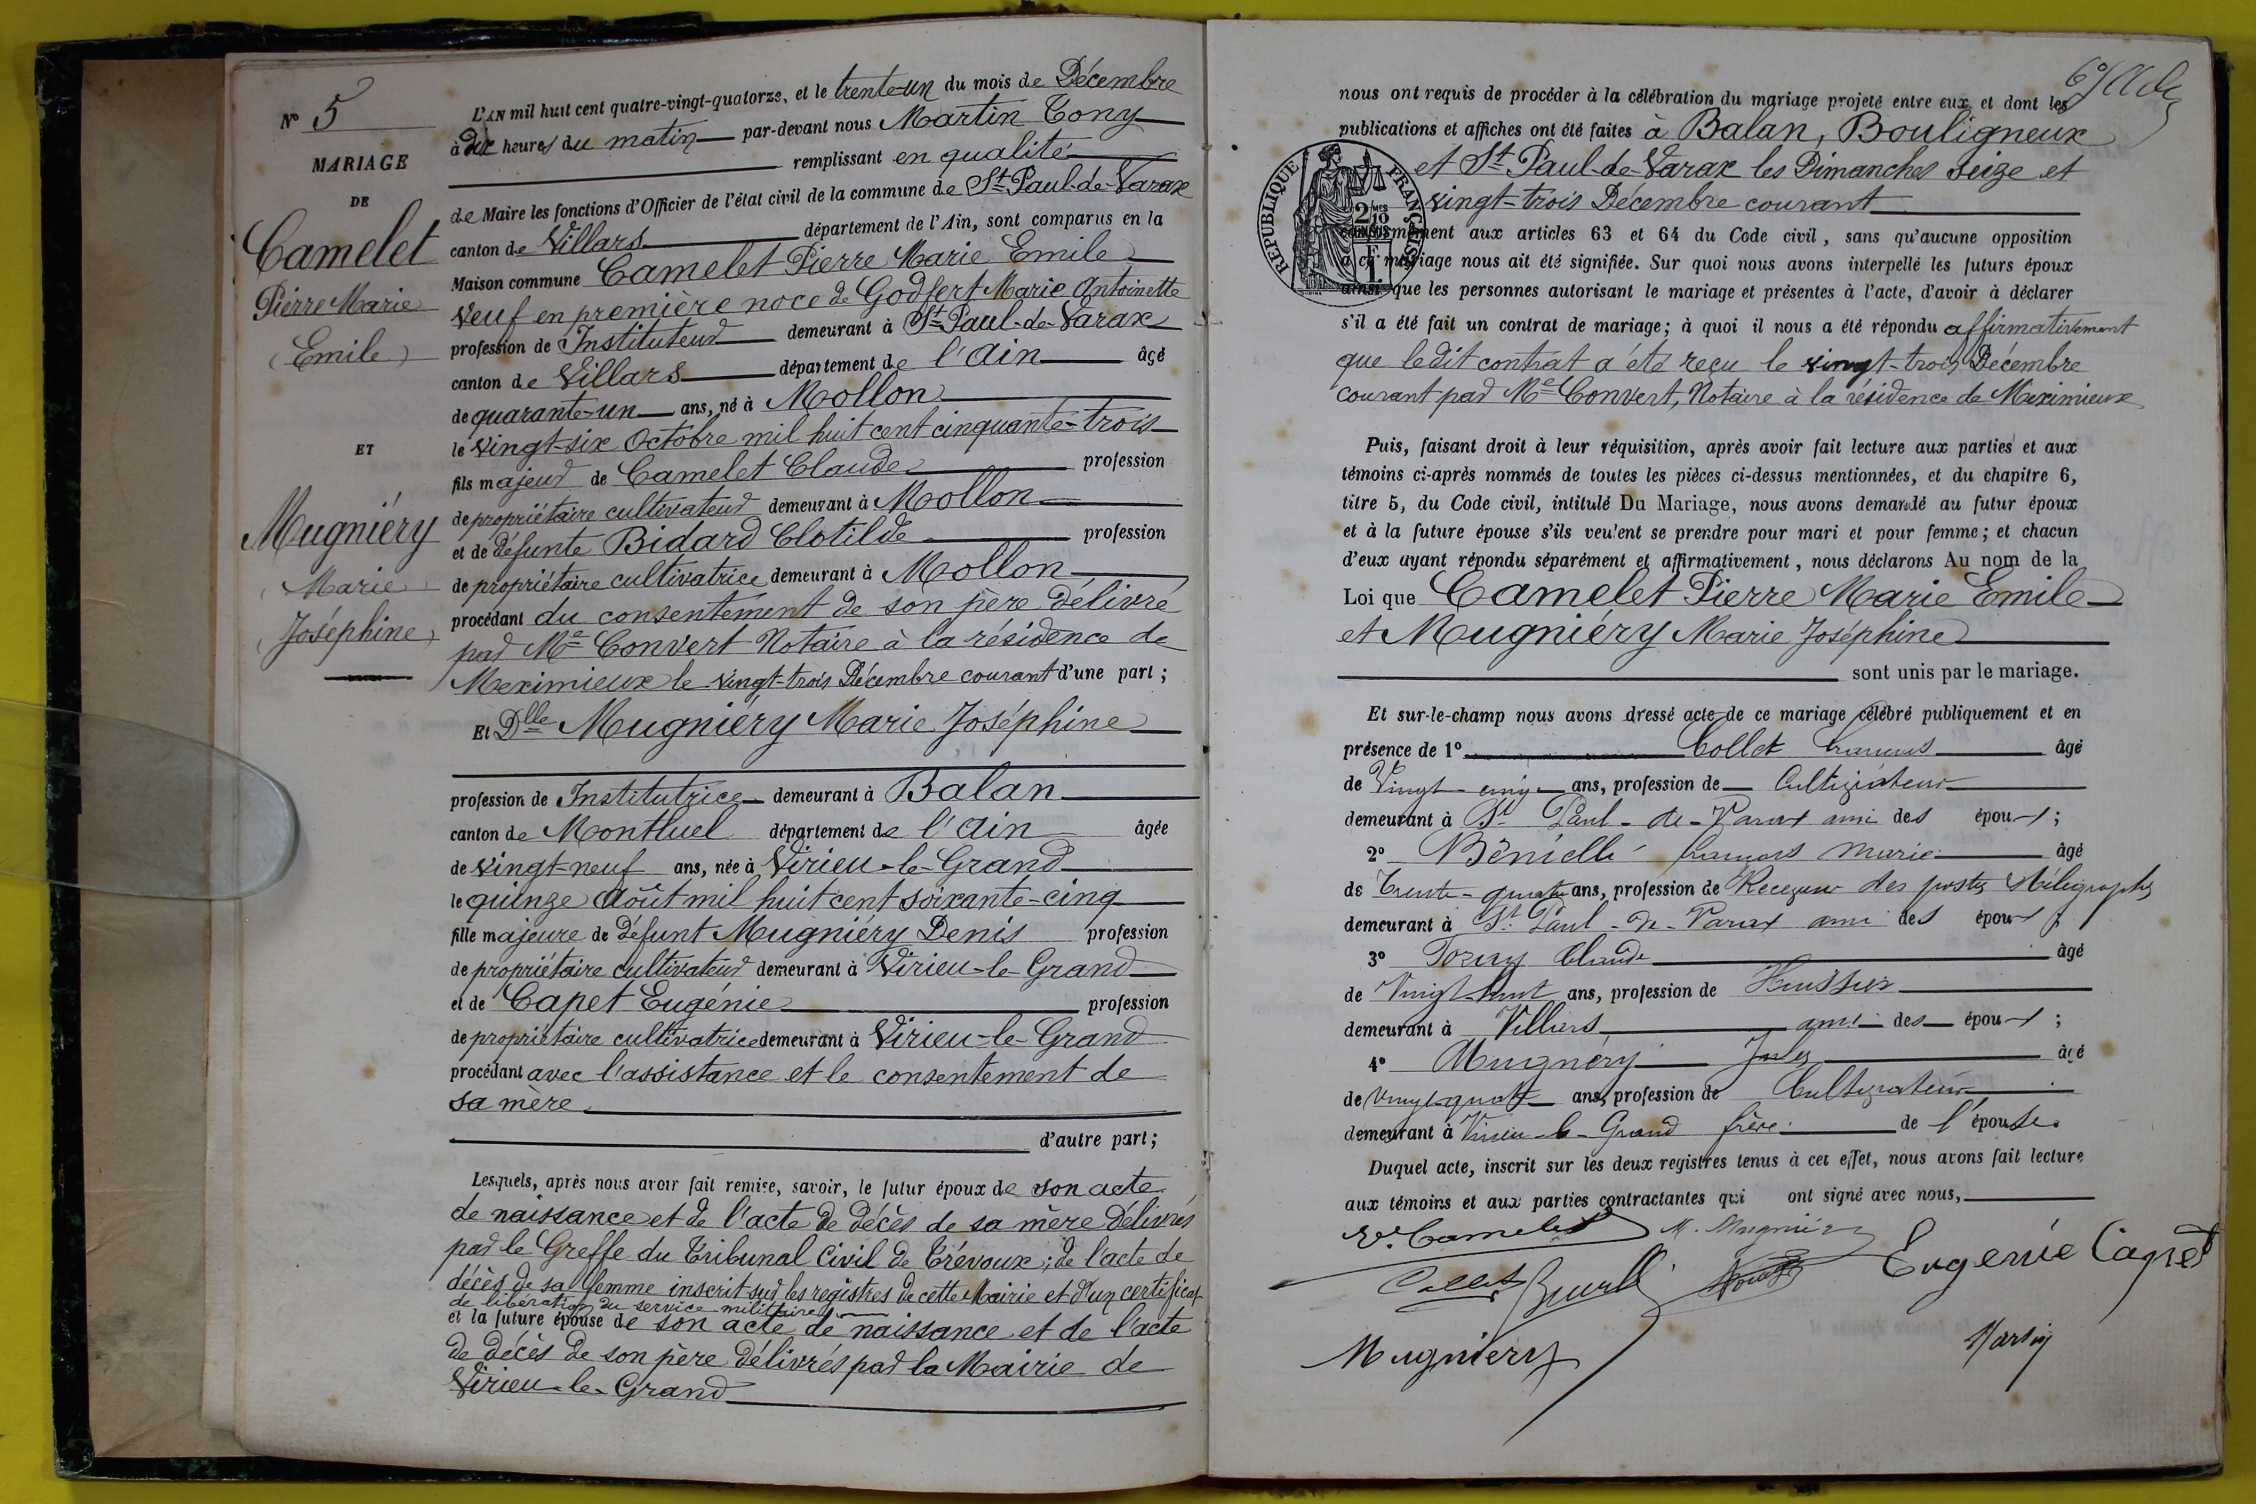 N° 5
MARIAGE
DE
Camelet
Pierre Marie
Emile
ET
Mugniéry
Marie
Joséphine
L'AN mil huit cent quatre-vingt-quatorze, et le trente-un du mois de Décembre
à dix heures du matin par-devant nous Martin Tony
remplissant en qualité
de Maire les fonctions d'Officier de l'état civil de la commune de St-Paul-de-Varax
canton de Villars département de l'Ain, sont comparus en la
Maison commune Camelet Pierre Marie Emile
Veuf en premiere noce de Godfert Marie Antoinette
profession de Instituteur demeurant à St-Paul-de-Varax
canton de Villars département de l'Ain âgé
de quarante-un ans, né à Mollon
le vingt-six Octobre mil huit cent cinquante-trois
fils majeur de Camelet Claude profession
de propriétaire cultivateur demeurant à Mollon
et de défunte Bidard Clotilde profession
de propriétaire cultivatrice demeurant à Mollon
procédant du consentement de son père délivré
par Me Convert Notaire à la résidence de
Meximieux le vingt-trois Décembre courant d'une part;
Et Dlle Mugniéry Marie Joséphine
profession de Institutrice demeurant à Balan
canton de Montluel département de l'Ain âgée
de vingt-neuf ans, née à Virieu-le-Grand
le quinze Août mil huit cent soixante-cinq
fille majeure de défunt Mugniéry Denis profession
de propriétaire cultivateur demeurant à Virieu-le-Grand
et de Capet Eugénie profession
de propriétaire cultivatrice demeurant à Virieu-le-Grand
procédant avec l'assistance et le consentement de
sa mère
d'autre part;
Lesquels, après nous avoir fait remise, savoir, le futur époux de son acte
de naissance et de l'acte de décès de sa mère délivrés
par le Greffe du Tribunal Civil de Trévoux; de l'acte de
décès de sa femme inscrit sur les registres de cette Mairie et d'un certificat
de libération du service militaire
et la future épouse de son acte de naissance et de l'acte
de décès de son père délivrés par la Mairie de
Virieu-le-Grand
nous ont requis de procéder à la célébration du mariage projeté entre eux et dont les
publications et affiches ont été faites à Balan, Bouligneux
et St-Paul-de-Varax les Dimanches seize et
vingt-trois Décembre courant
REPUBLIQUE FRANÇAISE
conformément aux articles 63 et 64 du Code civil, sans qu'aucune opposition
à ce mariage nous ait été signifiée. Sur quoi nous avons interpellé les futurs époux
ainsi que les personnes autorisant le mariage et présentes à l'acte, d'avoir à déclarer
s'il a été fait un contrat de mariage; à quoi il nous a été répondu affirmativement
que ledit contrat a été reçu le vingt-trois Décembre
courant par Me Convert, Notaire à la résidence de Meximieux
Puis, faisant droit à leur réquisition, après avoir fait lecture aux parties et aux
témoins ci-après nommés de toutes les pièces ci-dessus mentionnées, et du chapitre 6,
titre 5, du Code civil, intitulé Du Mariage, nous avons demandé au futur époux
et à la future épouse s'ils veulent se prendre pour mari et pour femme; et chacun
d'eux ayant répondu séparément et affirmativement, nous déclarons Au nom de la
Loi que Camelet Pierre Marie Emile
et Mugniéry Marie Joséphine
sont unis par le mariage.
Et sur-le-champ nous avons dressé acte de ce mariage célébré publiquement et en
présence de 1° Collet François âgé
de Vingt-cinq ans, profession de Cultivateur
demeurant à St Paul-de-Varax ami des époux;
2° François Marie âgé
de Trente-quatre ans, profession de Receveur des postes télégraphes
demeurant à St Paul-de-Varax ami des époux;
3° Claude âgé
de Vingt huit ans, profession de Huissier
demeurant à Villars ami des époux;
4° Mugniéry Jules âgé
de vingt-quatre ans, profession de Cultivateur
demeurant à Virieu-le-Grand frère de l'épouse.
Duquel acte, inscrit sur les deux registres tenus à cet effet, nous avons fait lecture
aux témoins et aux parties contractantes qui ont signé avec nous,
E. Camelet M. Mugniéry
Collet Eugénie Capet
Mugniery Martin